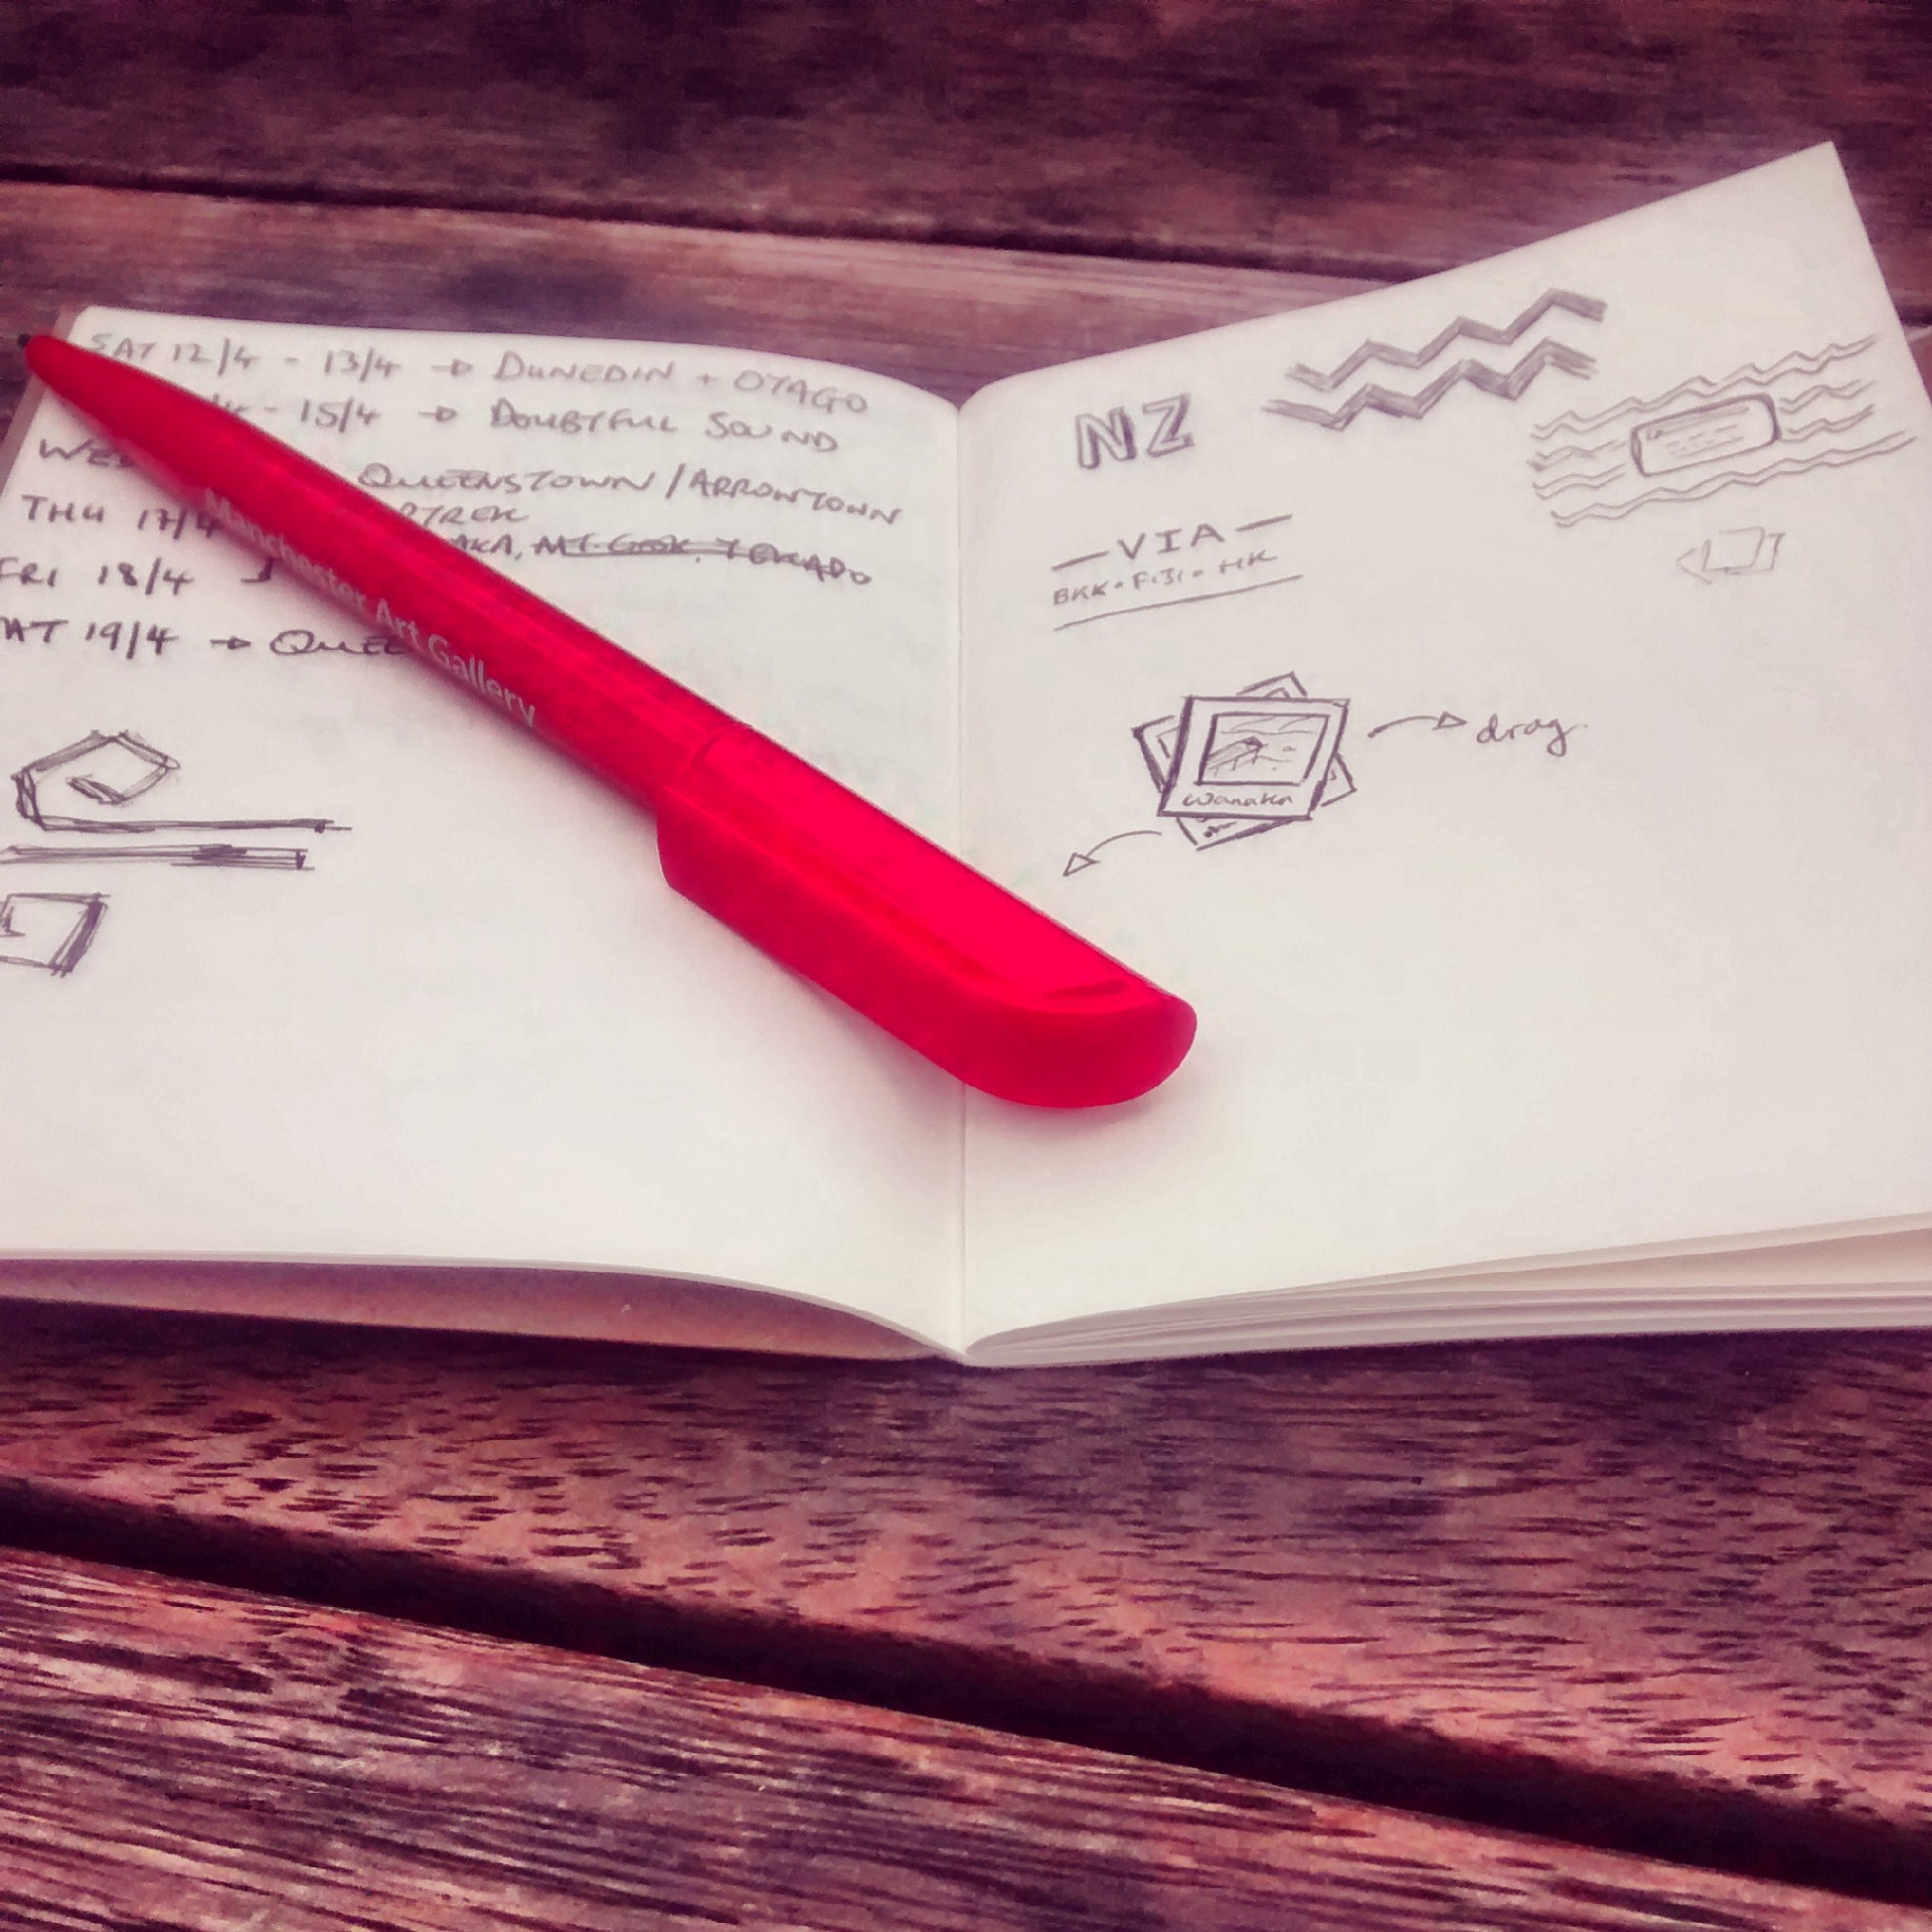 SAT 12/4 - 13/4 → DUNEDIN + OTAGO
/4 - 15/4 → DOUBTFUL SOUND
WED QUEENSTOWN / ARROWTOWN
THU 17/4
AKA, MT. COOK, TEKAPO
FRI 18/4
SAT 19/4 → QUEE
Manchester Art Gallery
NZ
- VIA -
BKK • FIJI • HK
Wanaka
drag